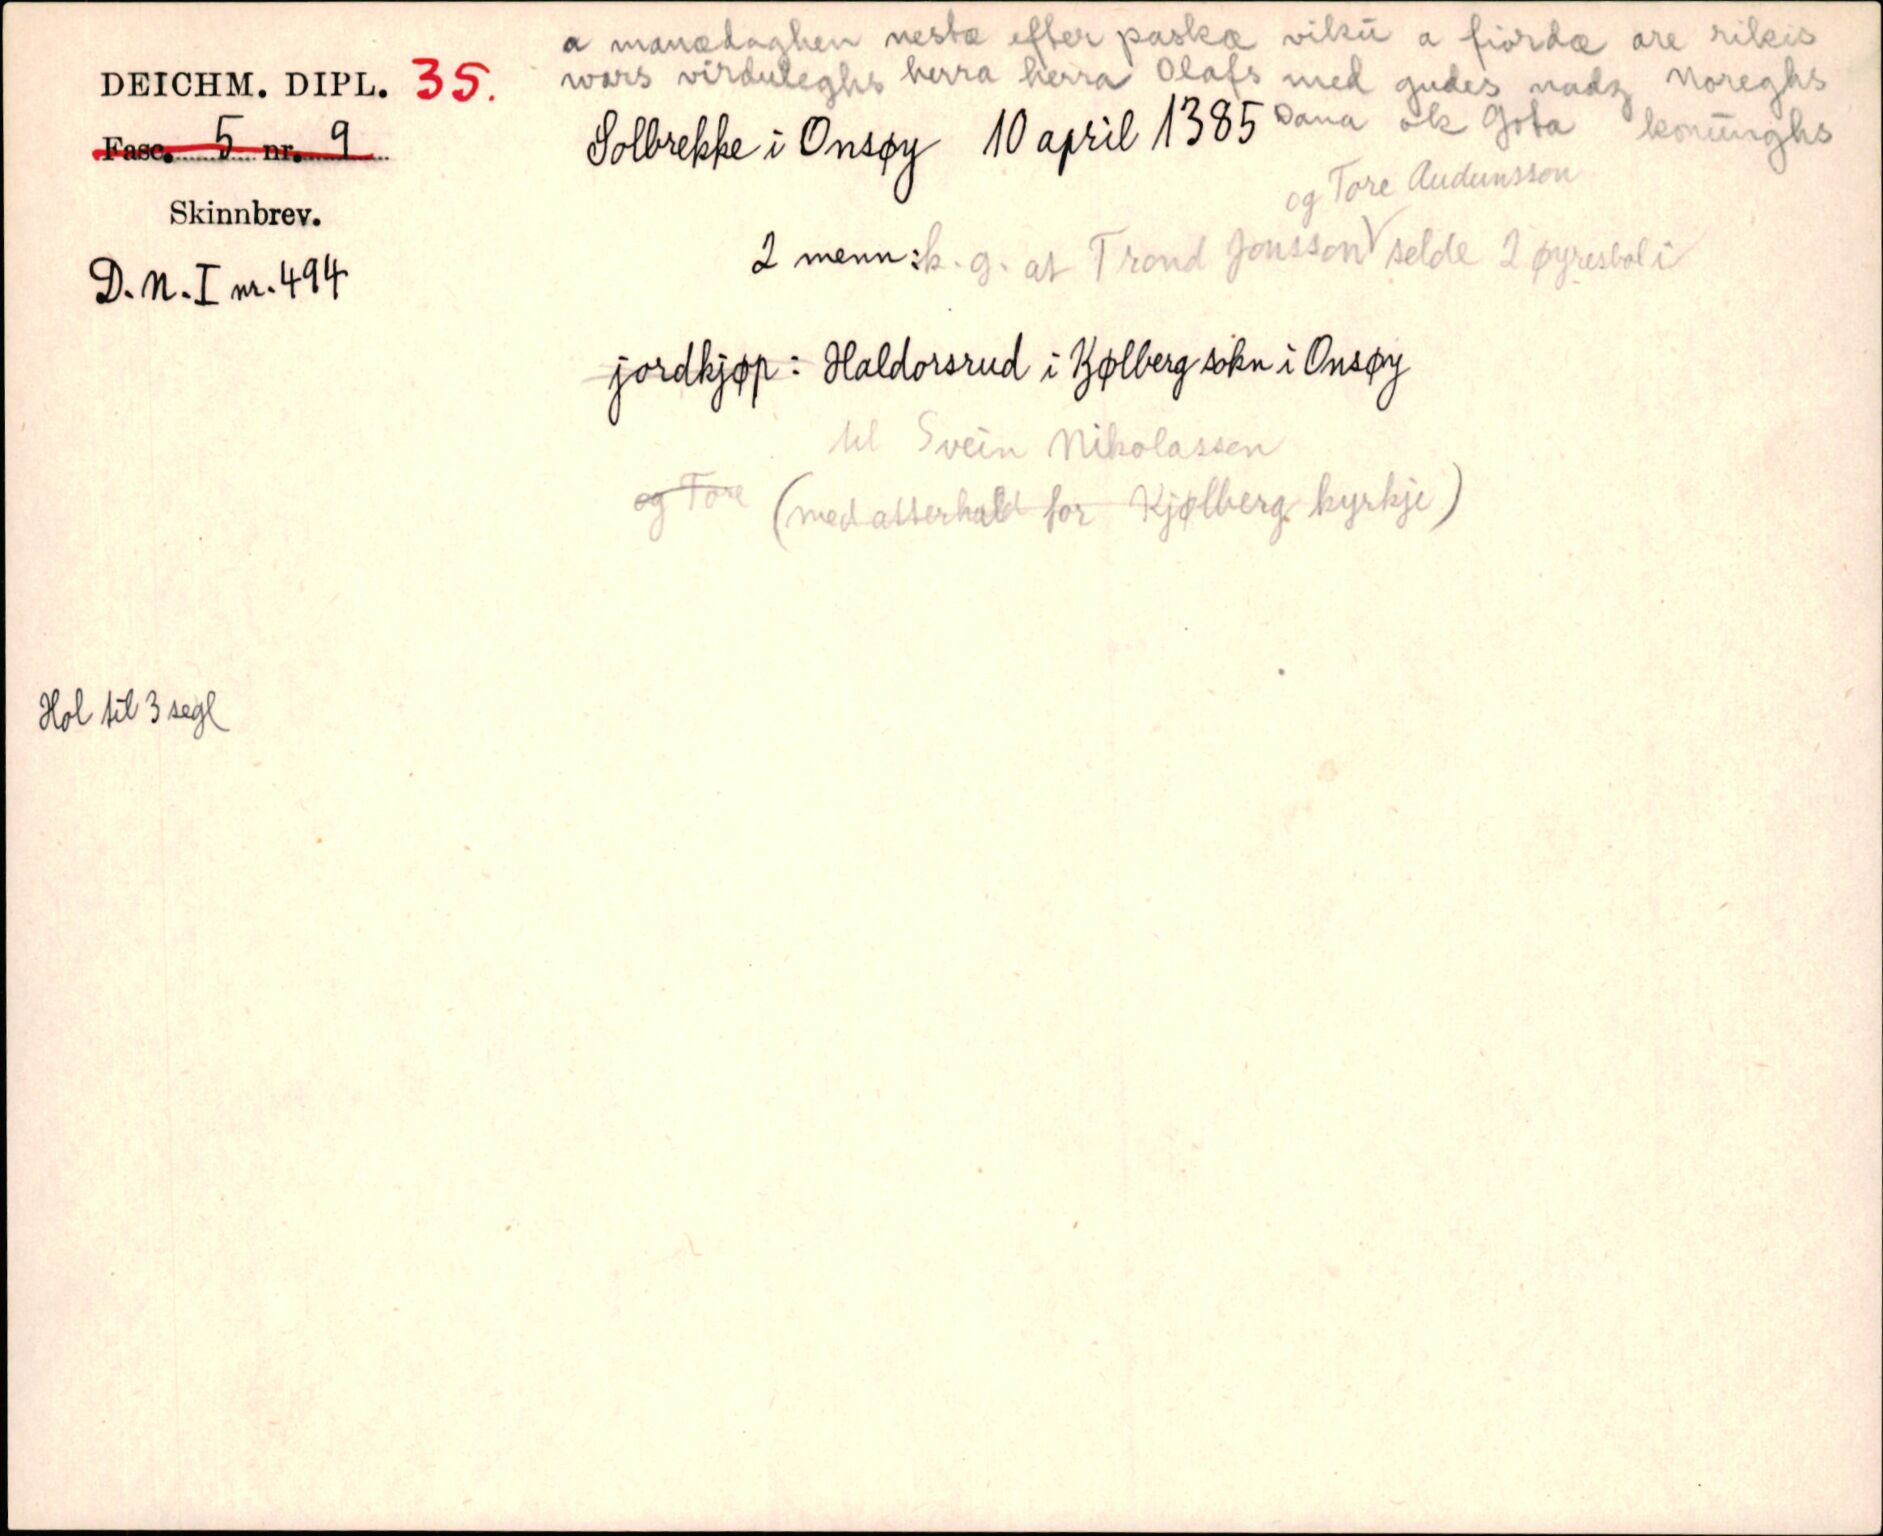 a manædaghen nesta efter paska vikū a fiordæ are rikis
wars virduleghs herra herra Olafs med gudes nadz Noreghs
Dana ok Gota konūnghs
DEICHM. DIPL. 35.
Fasc. 5 nr. 9
Solbrekke i Onsøy 10 april 1385
Skinnbrev.
og Tore Audunsson
2 menn: k. g. at Trond Jonsson V selde 2 øyresbol i
D.N. I nr. 494
jordkjøp: Haldorsrud i Kjølberg sokn i Onsøy
til Svein Nikolassen
og Tore (med atterhald for Kjølberg kyrkje)
Hol til 3 segl